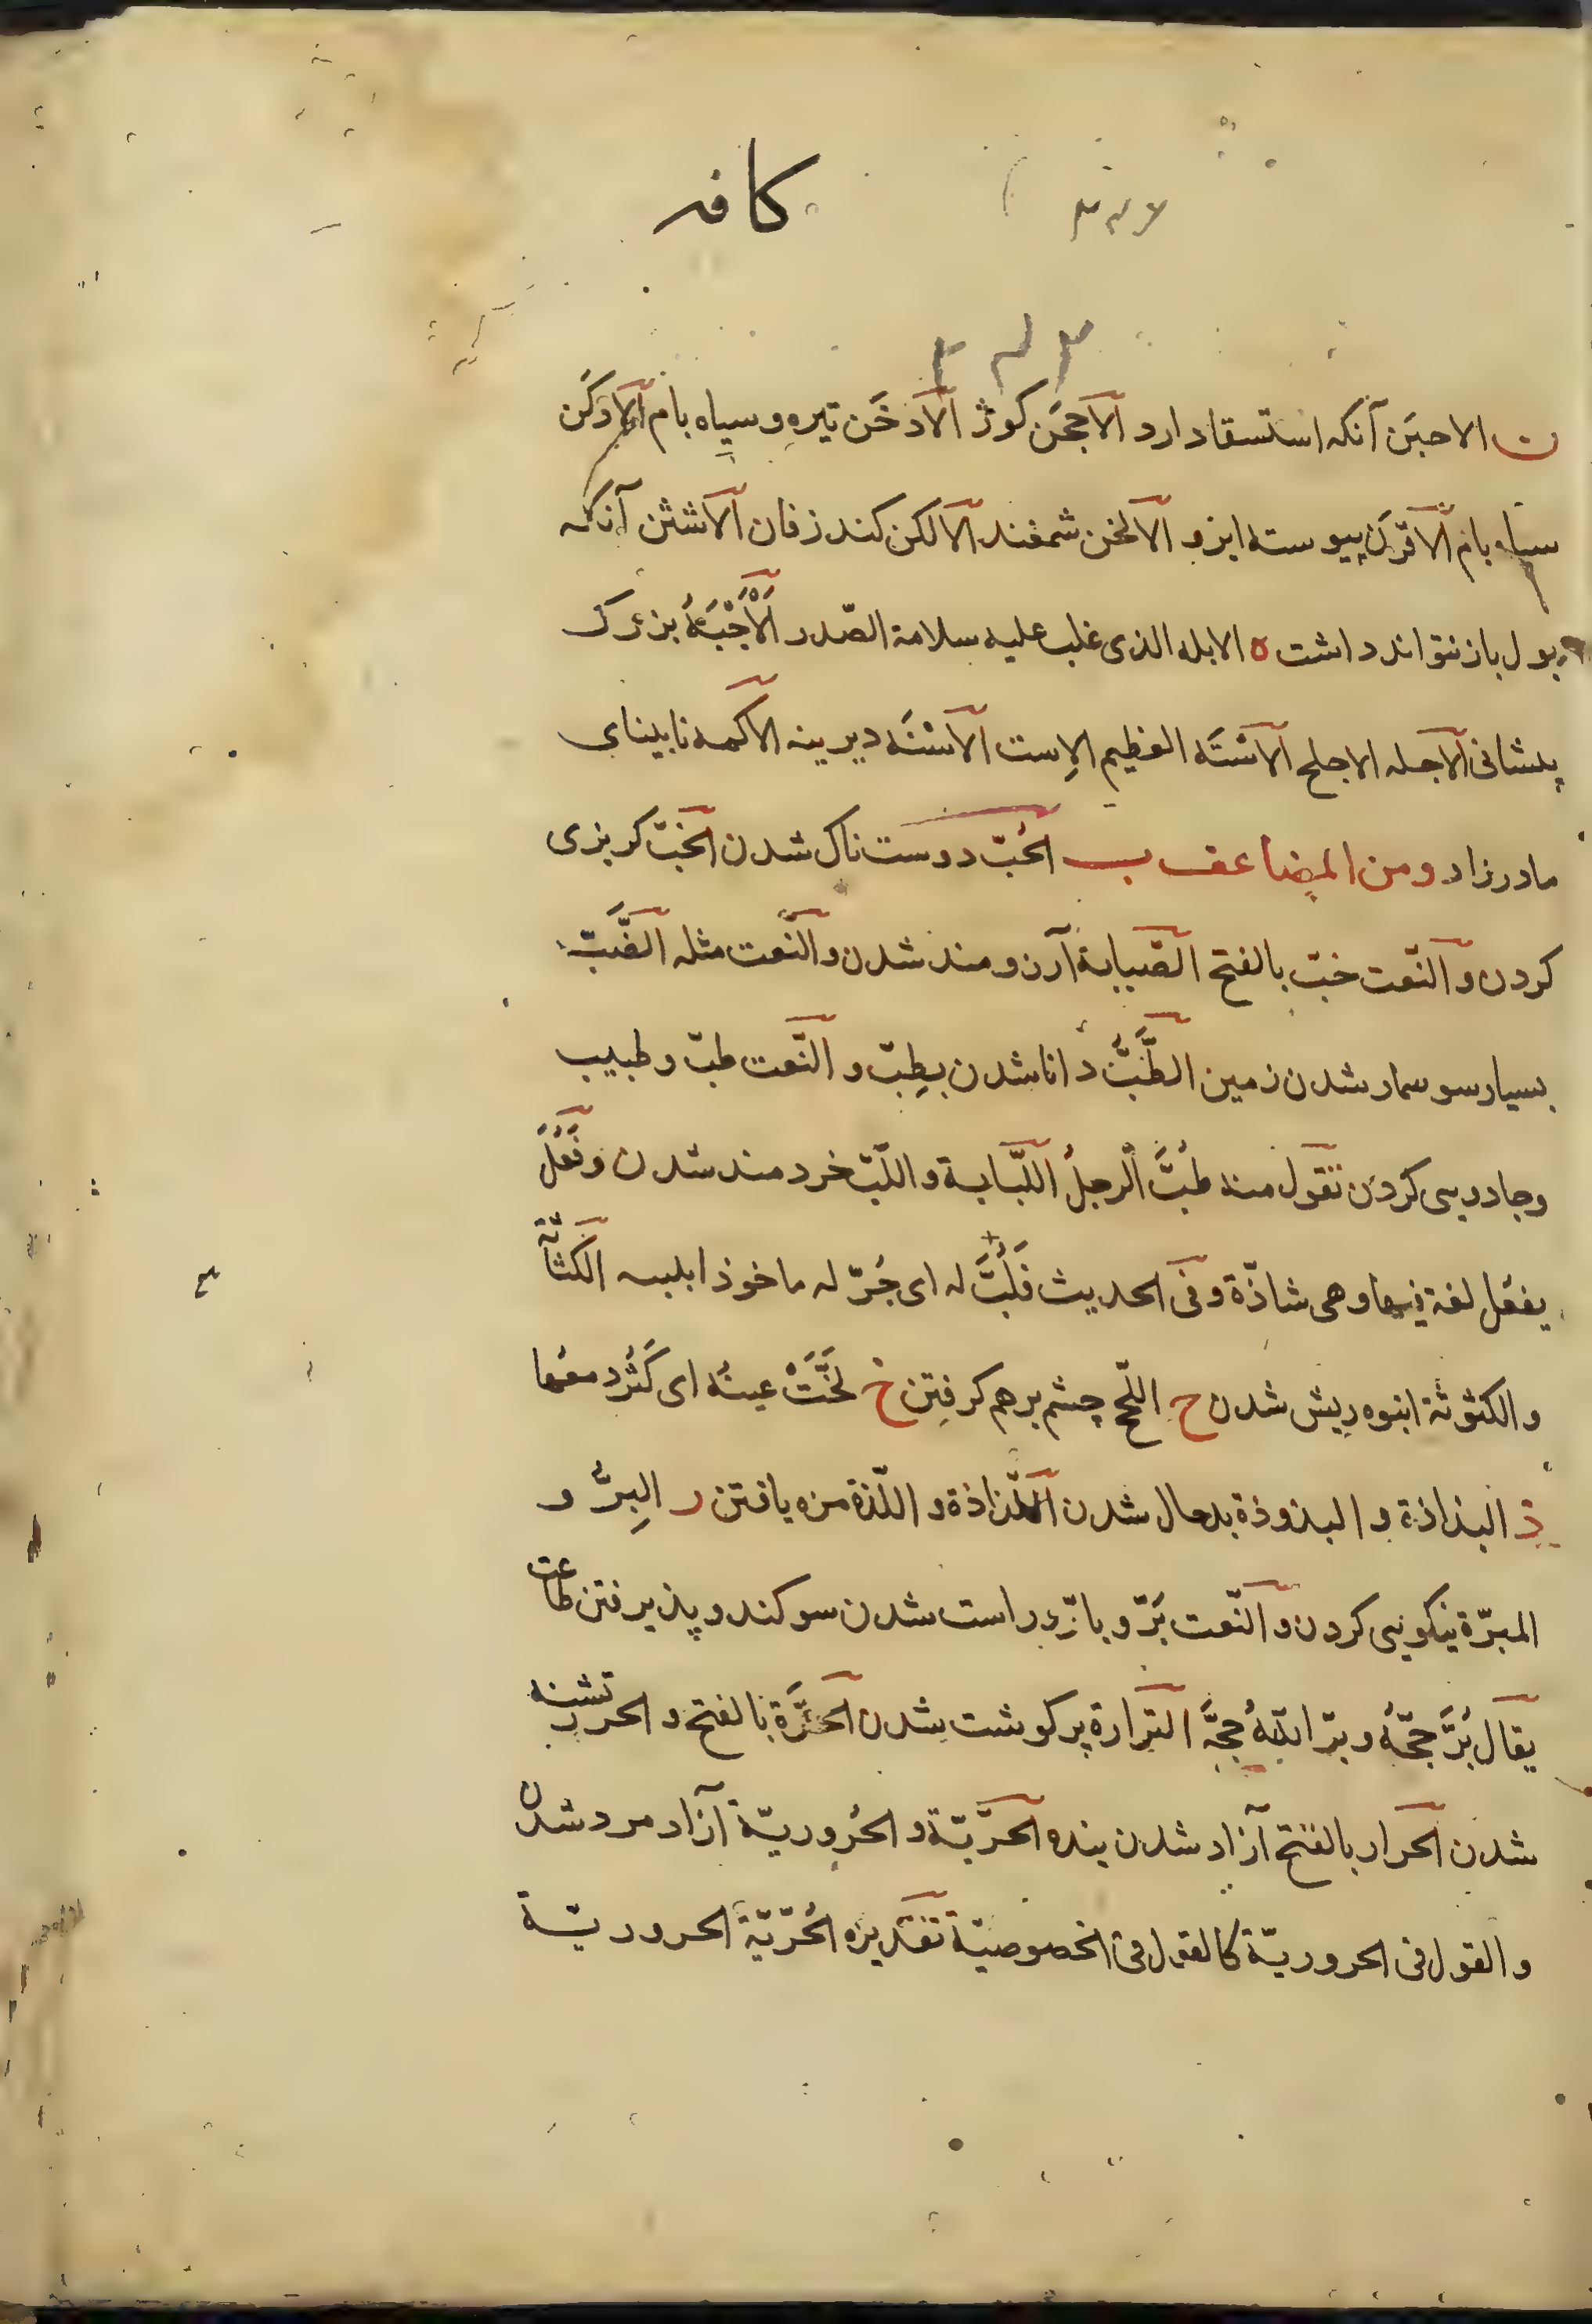 کافه
ن الاحبَن آنکه استسقا دارد الاحجَن کوژ الادخَن تیره و سیاه بام الادکَن
سیاه بام الاقرَن پیوسته ابرو الالخن شمغند الالکن کند زفان الاشثن آنکه
بول باز نتواند داشت ه الابله الذی غلب علیه سلامة الصّدر الاَجْبَهُ بزرک
پیشانی الاجله الاجلح الاَسْتَه العظیم الاِست الاَسْنَه دیرینه الاکمه نابینای
مادرزاد ومن المضاعف ب الحُبّ دوست ناک شدن الخبّ کربزی
کردن و النّعت خبّ بالفتح الصّبابة آرزومند شدن والنّعت مثله الضَّبَب
بسیار سوسمار شدن زمین الطَّبُّ دانا شدن بطِبّ و النّعت طبّ و طبیب
وجادویی کردن تقول منه طُبَّ الرجلُ اللّبابة واللّبّ خردمند شدن وفَعُلَ
یفعُل لغة فیها وهی شاذّة وفی الحدیث فَلُبَّبَ له ای جُرّ له ماخوذ ابلببه الکثاثة
و الکثوثة انبوه ریش شدن ح اللّحح چشم برهم کرفتن خ لَخَّتْ عینُه ای کَثُر دمعُها
ذ البذاذة و البذوذة بدحال شدن اللّذاذة و اللّذة مزه یافتن ر البِرُّ و
المبرّة نیکویی کردن و النّعت بَرّ و بارّ و راست شدن سوکند و پذیرفتن طاعت
یقال بُرَّ حجّهُ و برّ اللّهُ حجّهَ الترارة پر کوشت شدن الحَرَّة بالفتح و الحرر تشنه
شدن الحرار بالفتح آزاد شدن بنده الحرّیّة و الحُروریّة آزاد مرد شدن
و القول فی الحروریّة کالقول فی الخصوصیّة تقدیره الحُرّیّة الحروریّة